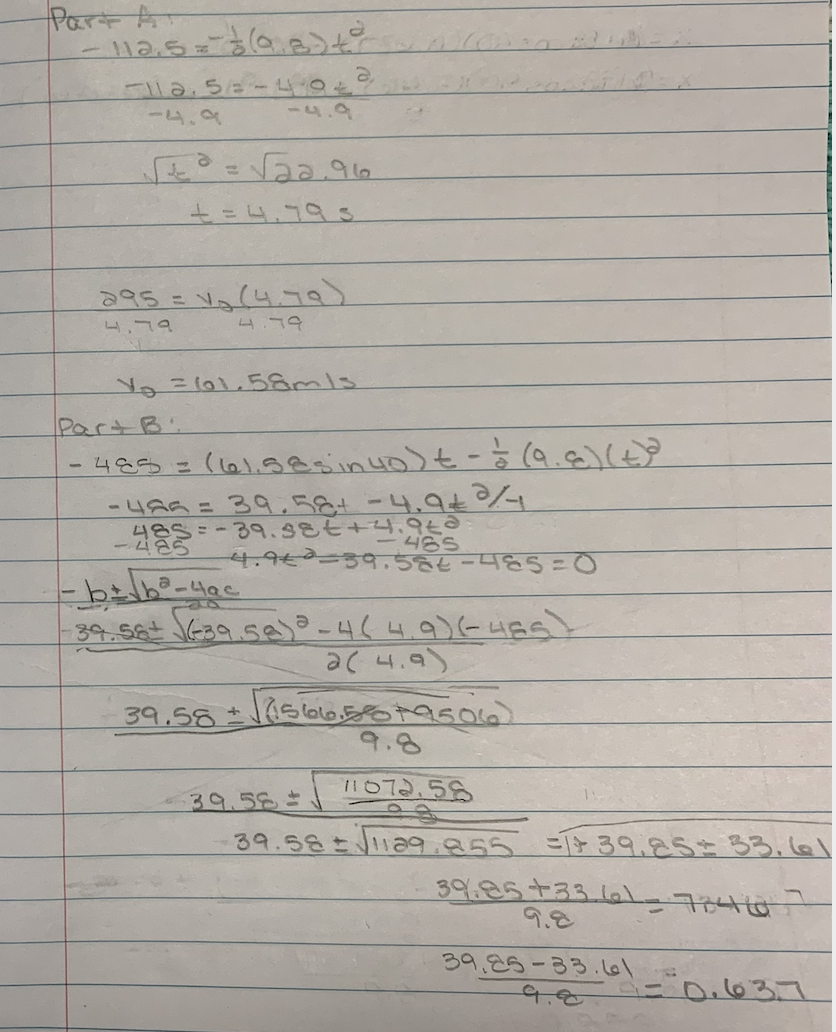 Part A:
-112.5 = -½(9.8)t²
-112.5 = -4.9t²
-4.9 -4.9
√t² = √22.96
t = 4.79 s
295 = v₀(4.79)
4.79 4.79
v₀ = 61.58 m/s
Part B:
-485 = (61.58 sin 40)t - ½(9.8)(t)²
-485 = 39.58t - 4.9t²/-1
485 = -39.58t + 4.9t²
-485 -485
4.9t² - 39.58t - 485 = 0
-b ± √b² - 4ac
2a
39.58 ± √(-39.58)² - 4(4.9)(-485)
2(4.9)
39.58 ± √(1566.58 + 9506)
9.8
39.58 ± √11072.58
9.8
39.58 ± √1129.855 = 39.85 ± 33.61
39.85 + 33.61 =
9.8
39.85 - 33.61 = 0.637
9.8